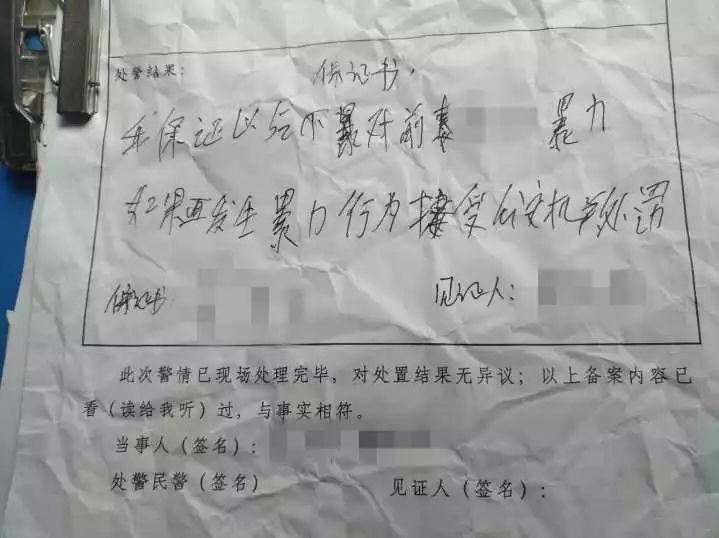 处警结果：
保证书，
我保证以后不暴对前妻 暴力
如果再发生暴力行为接受公安机关处罚
保证书 见证人：
此次警情已现场处理完毕，对处置结果无异议；以上备案内容已
看（读给我听）过，与事实相符。
当事人（签名）：
处警民警（签名） 见证人（签名）：